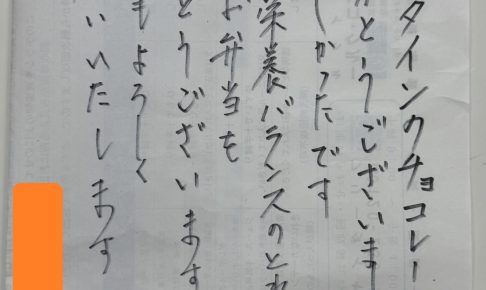 タインのチョコレー
がとうございます
しかったです
栄養バランスのとれ
お弁当を
とうございます
もよろしく
いいたします